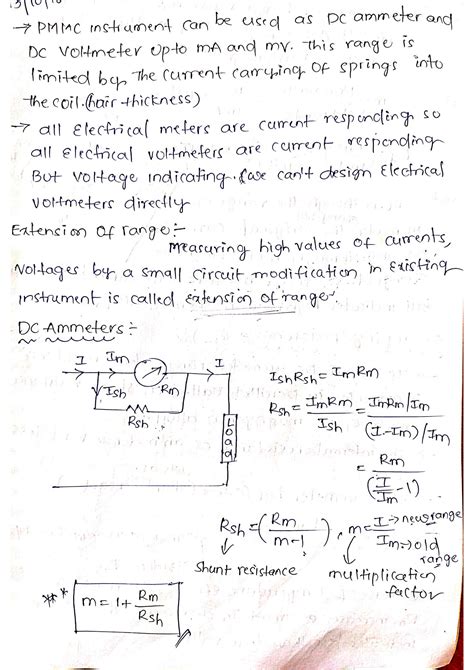 3/10/18
→ PMMC instrument can be used as DC ammeter and
DC Voltmeter upto mA and mv. this range is
limited by the current carrying of springs into
the coil. (hair thickness)
→ all Electrical meters are current responding so
all electrical voltmeters are current responding
But voltage indicating. (we can't design Electrical
voltmeters directly
Extension of range:-
Measuring high values of currents,
voltages by a small circuit modification in existing
instrument is called extension of range.
DC Ammeters:-
I Im I
Ish Rm
Rsh
Load
IshRsh = ImRm
Rsh = ImRm/Ish = (ImRm/Im)/((I-Im)/Im)
= Rm/(I/Im - 1)
Rsh = (Rm/(m-1)), m = I→new range/Im→old range
Shunt resistance
multiplication factor
** * m = 1 + Rm/Rsh